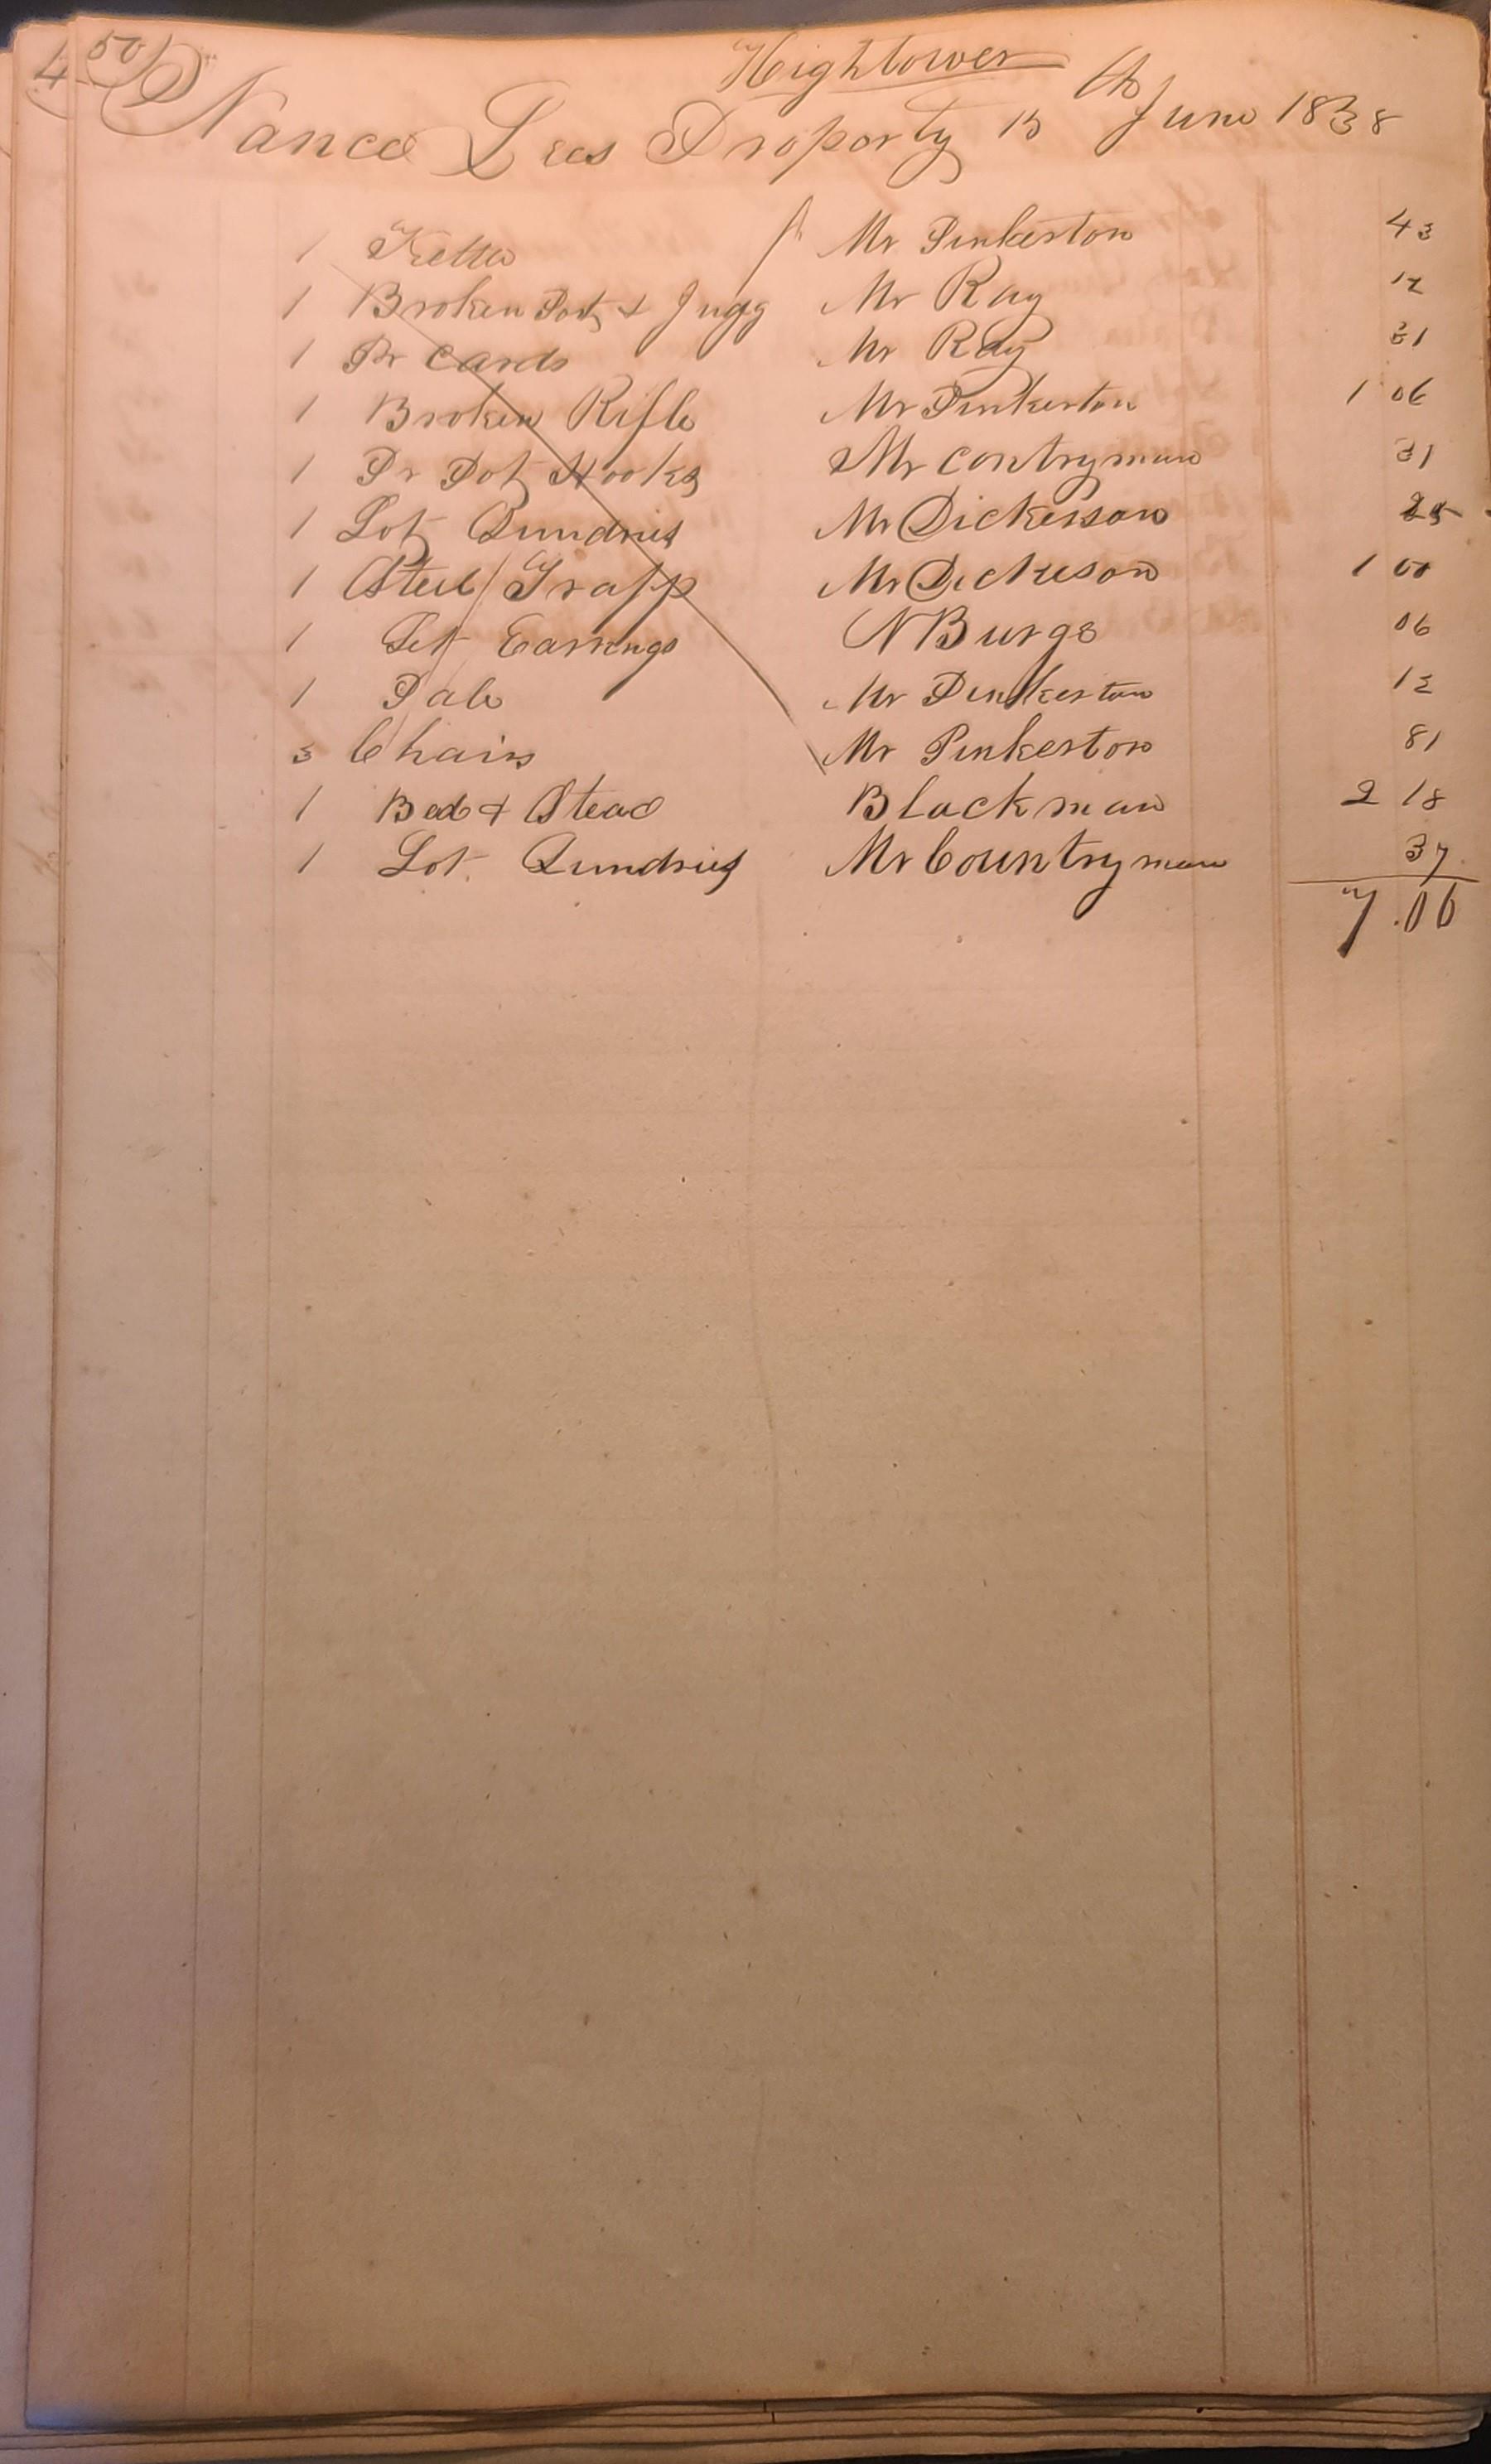 50
4
Hightower
Nance Lees Property 15th June 1838
1 Kettle Mr Pinkerton 43
1 Broken Pot & Jugg Mr Ray 12
1 Pr Cards Mr Ray 31
1 Broken Rifle Mr Pinkerton 1 06
1 Pr Pot Hooks Mr Contryman 31
1 Lot Sundries Mr Dickerson 25
1 Steel Trapp Mr Dickeson 1 00
1 Set Earrings N Burge 06
1 Pale Mr Pinkerton 12
3 Chairs Mr Pinkerton 81
1 Bed & Stead Blackman 2 18
1 Lot Sundries Mr Countryman 37
7.06